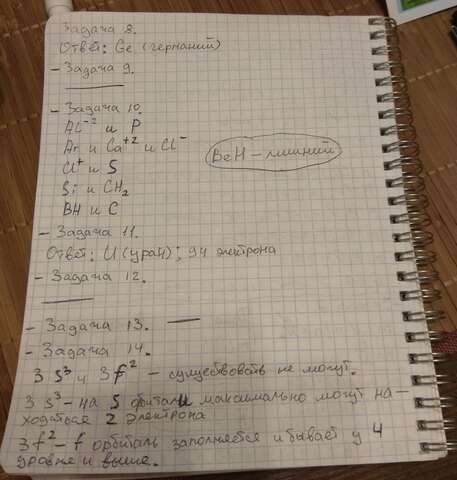 Задача 8.
Ответ: Ge (германий)
- Задача 9.
- Задача 10.
Al⁻² и P
Ar и Ca⁺² и Cl⁻
Cl⁺ и S
BeH - лишний
Si и CH₂
BH и C
- Задача 11.
Ответ: U (уран); 94 электрона
- Задача 12.
- Задача 13.
- Задача 14.
3s³ и 3f² - существовать не могут.
3s³ - на S орбитали максимально могут на-
ходиться 2 электрона
3f² - f орбиталь заполняется и бывает у 4
уровне и выше.